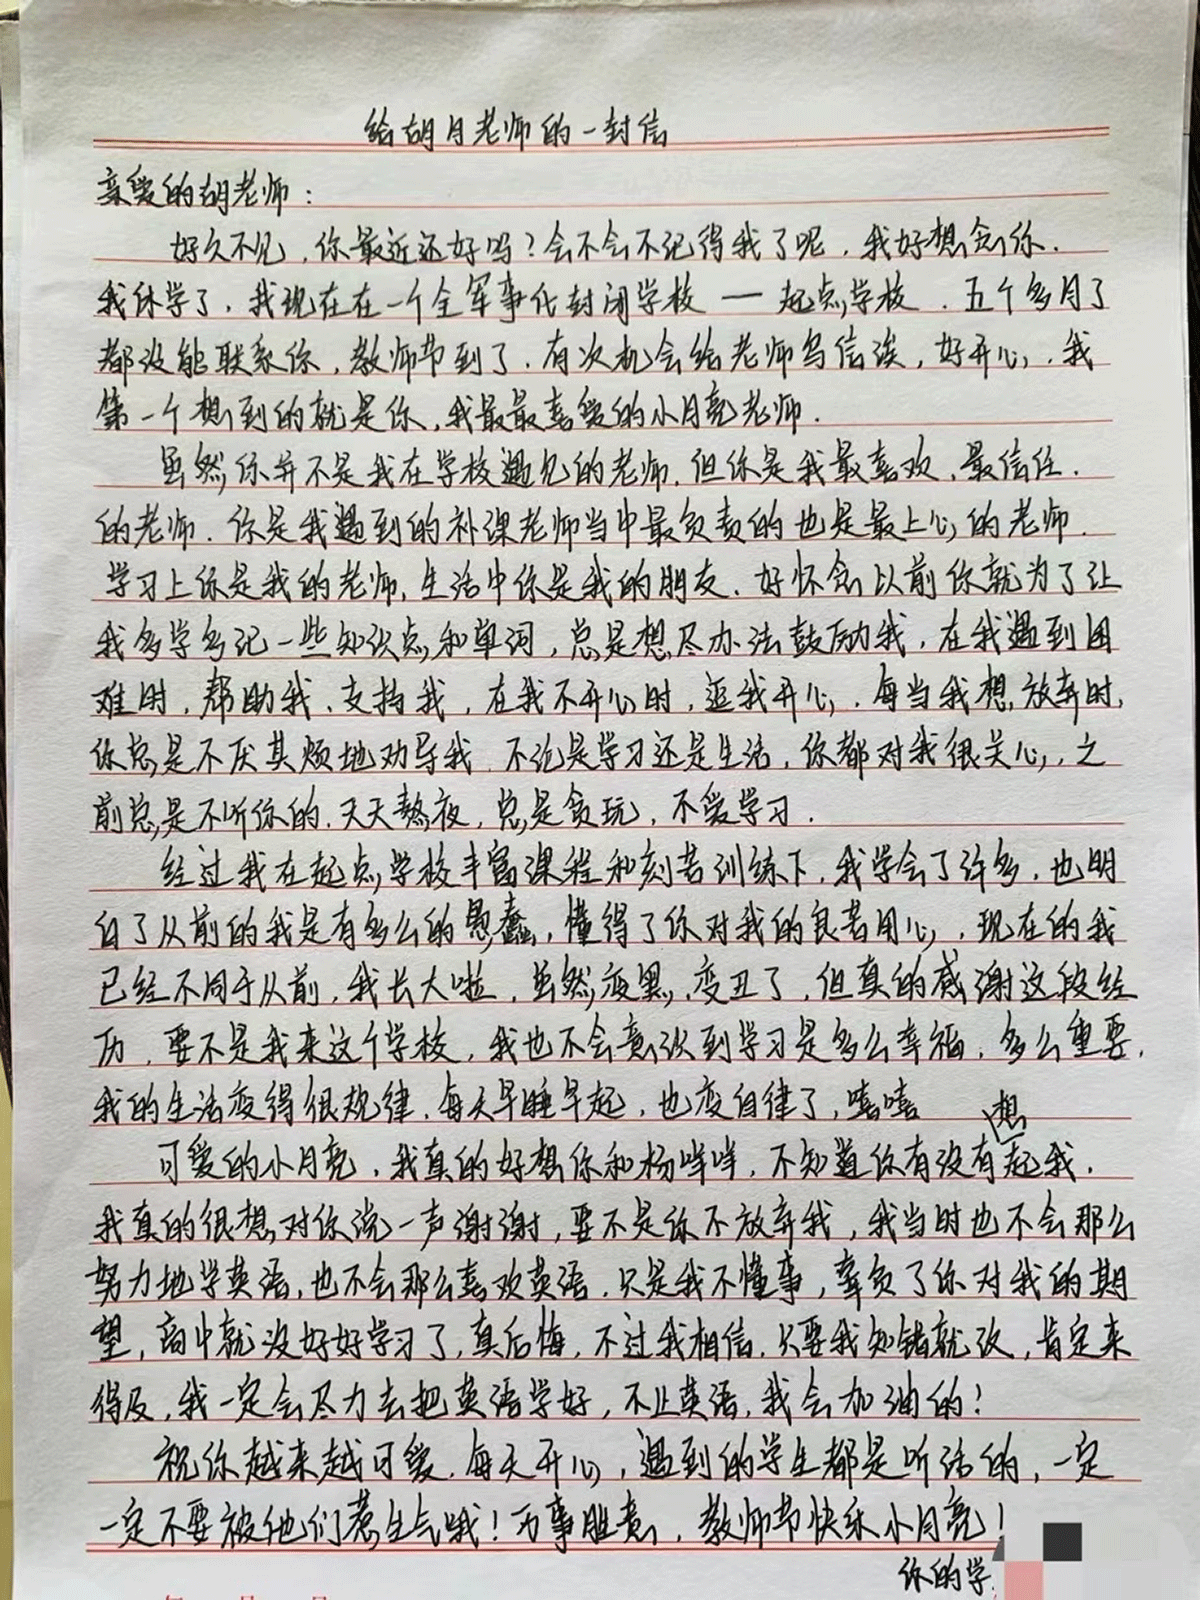 给胡月老师的一封信
亲爱的胡老师：
好久不见，你最近还好吗？会不会不记得我了呢，我好想念你．
我休学了，我现在在一个全军事化封闭学校——起点学校．五个多月了
都没能联系你，教师节到了．有次机会给老师写信诶，好开心，我
第一个想到的就是你，我最最喜爱的小月亮老师．
虽然你并不是我在学校遇见的老师，但你是我最喜欢、最信任．
的老师．你是我遇到的补课老师当中最负责的也是最上心的老师．
学习上你是我的老师，生活中你是我的朋友．好怀念以前你就为了让
我多学多记一些知识点和单词，总是想尽办法鼓励我，在我遇到困
难时，帮助我、支持我，在我不开心时，逗我开心，每当我想放弃时，
你总是不厌其烦地劝导我．不论是学习还是生活，你都对我很关心，之
前总是不听你的．天天熬夜，总是贪玩，不爱学习．
经过我在起点学校丰富课程和刻苦训练下，我学会了许多，也明
白了从前的我是有多么的愚蠢，懂得了你对我的良苦用心，现在的我
已经不同于从前，我长大啦，虽然变黑、变丑了，但真的感谢这段经
历，要不是我来这个学校，我也不会意识到学习是多么幸福，多么重要．
我的生活变得很规律．每天早睡早起，也变自律了，嘻嘻
可爱的小月亮，我真的好想你和杨咩咩，不知道你有没有想起我．
我真的很想对你说一声谢谢，要不是你不放弃我，我当时也不会那么
努力地学英语，也不会那么喜欢英语．只是我不懂事，辜负了你对我的期
望，高中就没好好学习了，真后悔，不过我相信，只要我知错就改，肯定来
得及，我一定会尽力去把英语学好，不止英语，我会加油的！
祝你越来越可爱．每天开心，遇到的学生都是听话的，一定
一定不要被他们惹生气哦！万事胜意，教师节快乐小月亮！
你的学